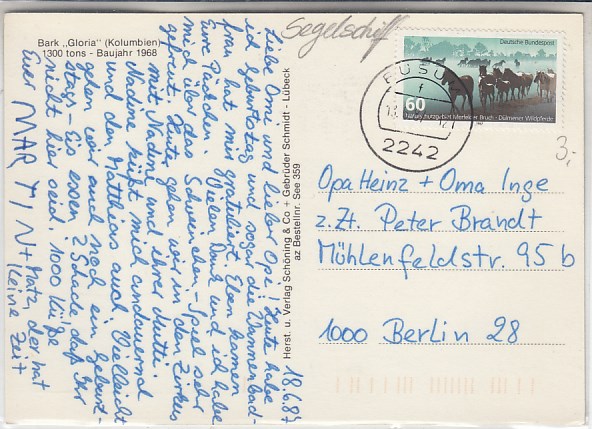 Bark „Gloria" (Kolumbien)
1300 tons - Baujahr 1968
Segelschiff
Deutsche Bundespost
60
Naturschutzgebiet Merfelder Bruch · Dülmener Wildpferde
BÜSUM
f
2242
3,-
18.6.87
Liebe Omi und lieber Opi! Heute habe
ich Geburtstag und sogar die Wannenbad-
frau hat mir gratuliert. Eben kamen
Eure Päckchen. Vielen Dank und ich habe
mich über das Schweinchen-Spiel sehr
gefreut. Heute gehen wir in den Zirkus
mit Nadine und ihrer Mutti.
Nadine küßt mich andauernd
und den Matthias auch. Vielleicht
gehen wir auch noch ein Geburt-
stags-Eis essen. Schade daß Ihr
nicht hier seid. 1000 Küße
Euer MARTIN + Matz, der hat
keine Zeit
Herst. u. Verlag Schöning & Co + Gebrüder Schmidt · Lübeck
az Bestellnr. See 359
Opa Heinz + Oma Inge
z.Zt. Peter Brandt
Mühlenfeldstr. 95 b
1000 Berlin 28